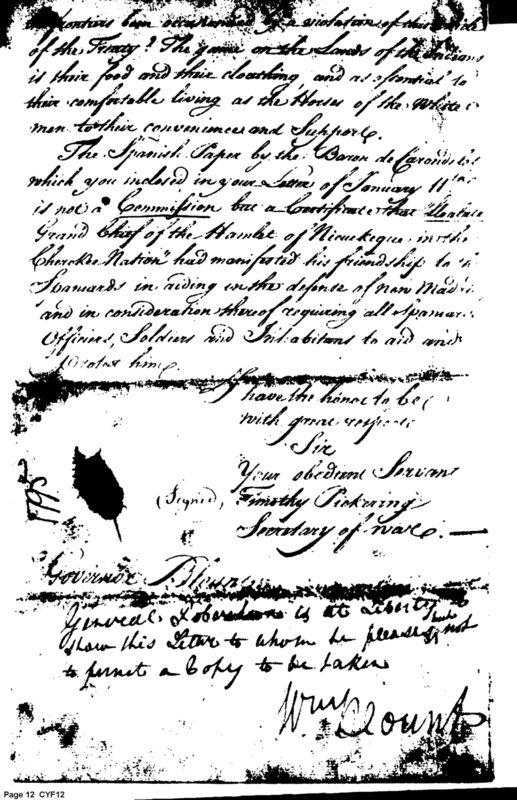 been occasioned by a violation of this article
of the Treaty? The game on the Lands of the Indians
is their food and their cloathing, and as essential to
their comfortable living as the Horses of the White
men to their convenience and Support.
The Spanish Paper by the Baron de Carondelet
which you inclosed in your Letter of January 11th
is not a Commission but a Certificate that
Grand Chief of the Hamlet of in the
Cherokee Nation had manifested his friendship to the
Spaniards in aiding in the defense of new Madrid
and in consideration thereof requiring all Spanish
Officers, Soldiers and Inhabitans to aid and
protect him.
I have the honor to be
with great respect
Sir
Your obedient Servant
(Signed) Timothy Pickering
Secretary of war. —
1795
Governor Blount
General Robertson is at Liberty to
show this Letter to whom he pleases but not
to permit a Copy to be taken
Wm Blount
Page 12 CYF12